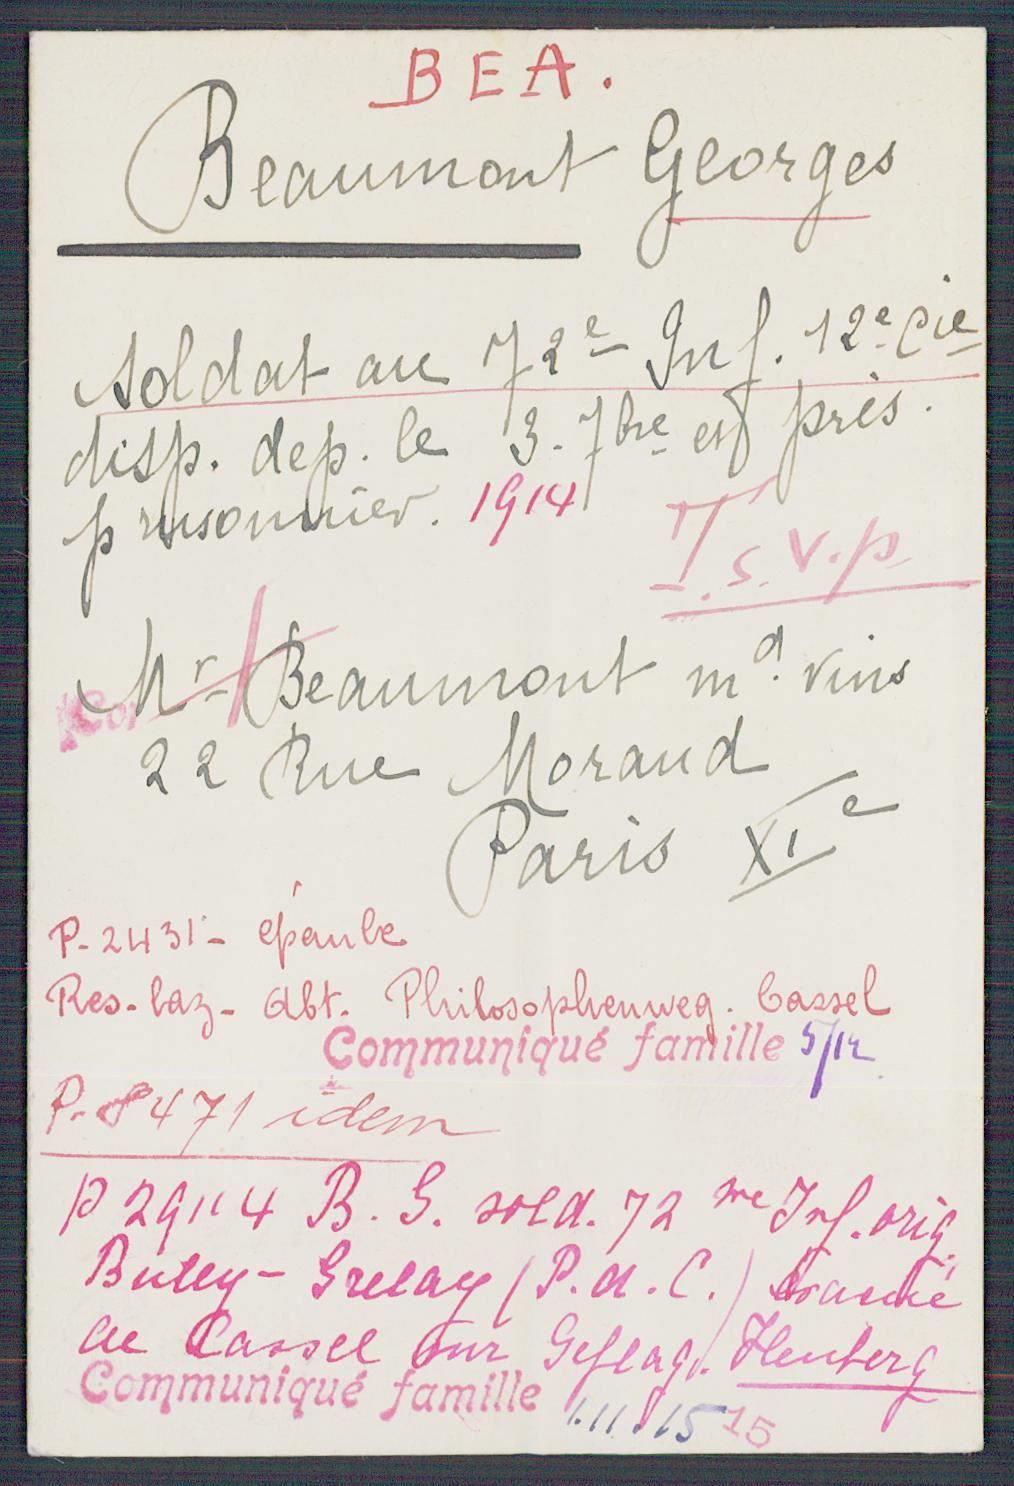 BEA.
Beaumont Georges
Soldat au 72e Inf. 12e Cie
disp. dep. le 3. 7bre est près.
prisonnier. 1914
T. s. v. p
Mr Beaumont md. vins
22 Rue Morand
Paris XIe
P. 2431 - épaule
Res. laz. Abt. Philosophenweg. Cassel
Communiqué famille 5/12
P. 8471 idem
P 29114 B. G. sold. 72 me Inf. orig.
(P. d. C.)
de Cassel sur Geflag. Heuberg
Communiqué famille 1.11.15 15